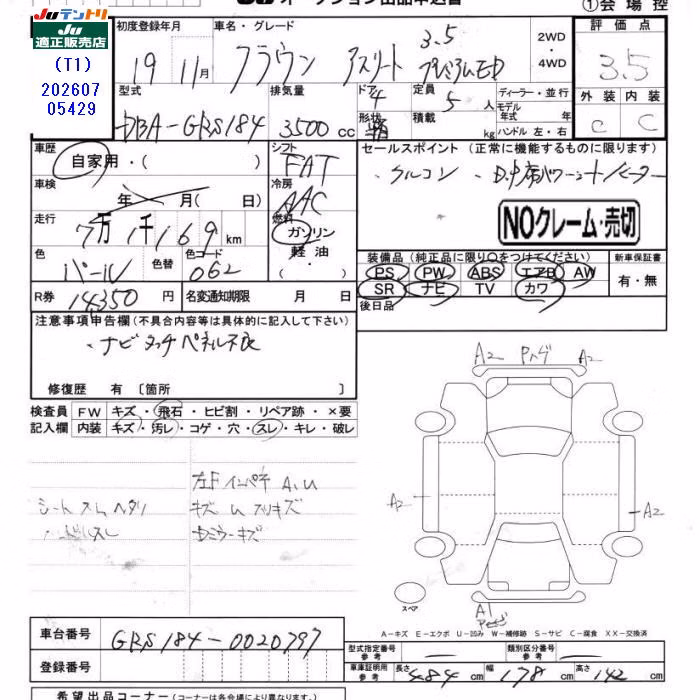 JUテントリ
JU
適正販売店
(T1)
202607
05429
①会場控
初度登録年月
車名・グレード
評価点
19年 11月
クラウン アスリート 3.5 プレミアムED
2WD
・
4WD
3.5
型式
排気量
ドア
定員
ディーラー・並行
外装 内装
4
5人
モデル
年式 年
DBA-GRS184
3500cc
形状
積載
kg
ハンドル 左・右
C C
車歴
シフト
セールスポイント (正常に機能するものに限ります)
自家用・( )
FAT
車検
冷房
年 月( 日)
AAC
NOクレーム・売切
走行
燃料
7万1千169km
ガソリン
・
軽油
・
色
色替
色コード
パール
062
装備品(純正品に限り○をつけてください)
新車保証書
PS PW ABS エアB AW
SR ナビ TV カワ
有・無
R券 14,350円
名変通知期限 月 日
後日品
注意事項申告欄(不具合内容等は具体的に記入して下さい)
・ナビタッチパネル不良
修復歴 有〔箇所 〕
検査員
FW キズ・飛石・ヒビ割・リペア跡・×要
記入欄
内装 キズ・汚レ・コゲ・穴・スレ・キレ・破レ
A2 A2
A2 A2
A1
スペア
A-キズ E-エクボ U-凹み W-補修跡 S-サビ C-腐食 XX-交換済
車台番号 GRS184-0020797
型式指定番号
参考
類別区分番号
参考
登録番号
車庫証明用
参考
長さ 484cm 幅 178cm 高さ 142cm
希望出品コーナー(コーナー名は各会場により異なります)